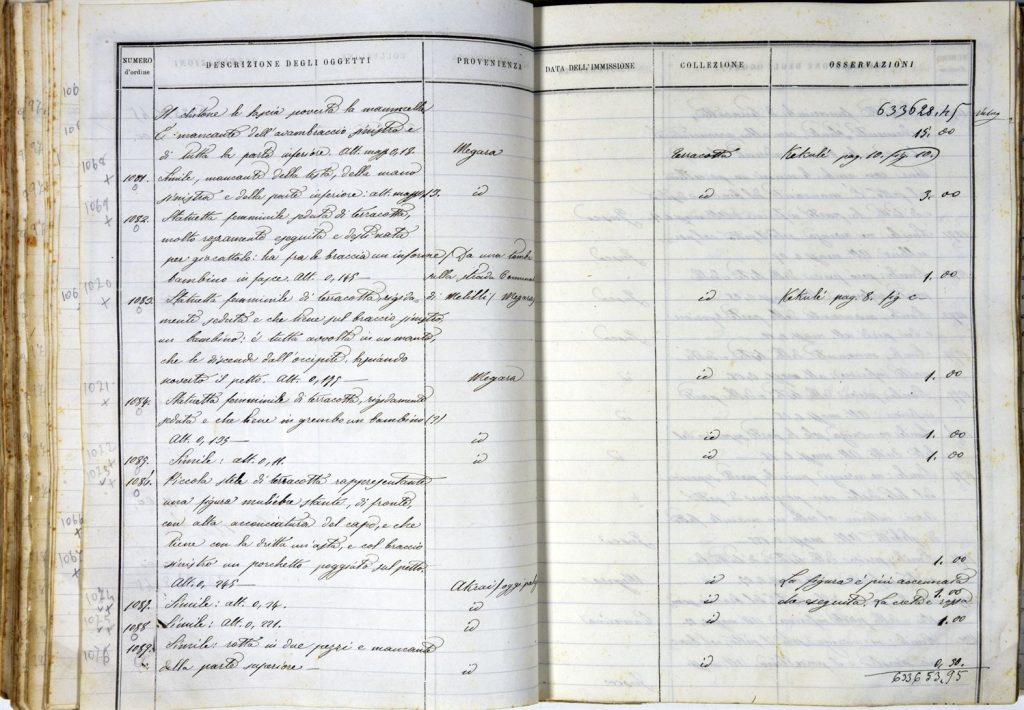 NUMERO d'ordine DESCRIZIONE DEGLI OGGETTI PROVENIENZA DATA DELL'IMMISSIONE COLLEZIONE OSSERVAZIONI
Il chitone le lascia la mammella 633628.45
È mancante dell'avambraccio sinistro e 15. 00
di tutta la parte inferiore. Alt. mass. 0,18. Megara terracotta Kekulé pag. 10. fig. 10.
1081. Simile, mancante della testa, della mano
sinistra e della parte inferiore: alt. mass. id id 3. 00
1082. Statuetta femminile seduta di terracotta,
molto rozzamente eseguita e destinata
per giocattolo: ha fra le braccia un informe (Da una tomba
bambino in fasce. Alt. 0,145 — sulla strada 1. 00
1083. Statuetta femminile di terracotta, rigida- di Melilli / Megara) id Kekulé pag. 8. fig. c
mente seduta e che tiene sul braccio sinistro
un bambino: è tutta avvolta in un manto,
che le discende dall'occipite, lasciando
il petto. Alt. 0,195 — Megara id 1. 00
1084. Statuetta femminile di terracotta, rigidamente
seduta e che tiene in grembo un bambino (?)
Alt. 0,193 — id id 1. 00
1085. Simile: alt. 0,11. id id 1. 00
1086. Piccola stele di terracotta rappresentante
una figura muliebre stante, di fronte,
con alta acconciatura del capo, e che
tiene con la dritta un'asta, e col braccio
sinistro un porchetto poggiato sul petto. 1. 00
Alt. 0,245 — Akrai id La figura è più accennata
1087. Simile: alt. 0,24. id id che eseguita. La creta è rossa 1. 00
1088. Simile: Alt. 0,221. id id 1. 00
1089. Simile: rotta in due pezzi e mancante
della parte superiore — id id 0,50.
633653,95
106
1068
1069
1020
106
1021
1022
1023
1066
1067
1024
1025
1026